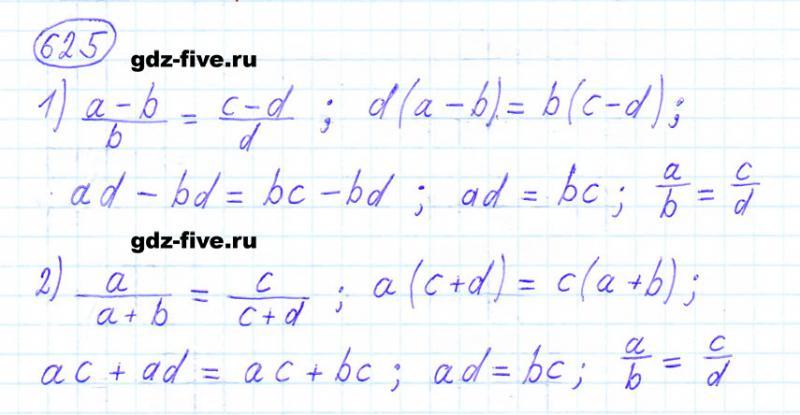 625
gdz-five.ru
1) (a - b)/b = (c - d)/d ; d(a - b) = b(c - d);
ad - bd = bc - bd ; ad = bc ; a/b = c/d
gdz-five.ru
2) a/(a + b) = c/(c + d) ; a(c + d) = c(a + b);
ac + ad = ac + bc ; ad = bc ; a/b = c/d